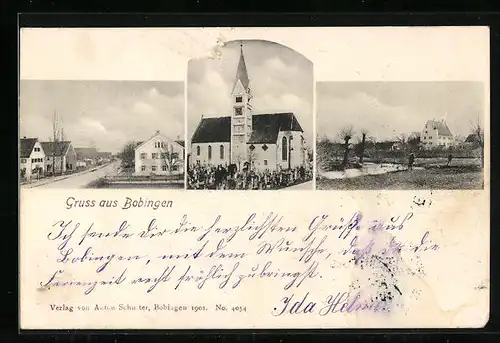 Gruss aus Bobingen
Ich sende Dir die herzlichsten Grüße aus
Bobingen, mit dem Wunsche, daß du die
Ferienzeit recht fröhlich zubringst.
Ida
Verlag von Anton Schuster, Bobingen 1901. No. 4054